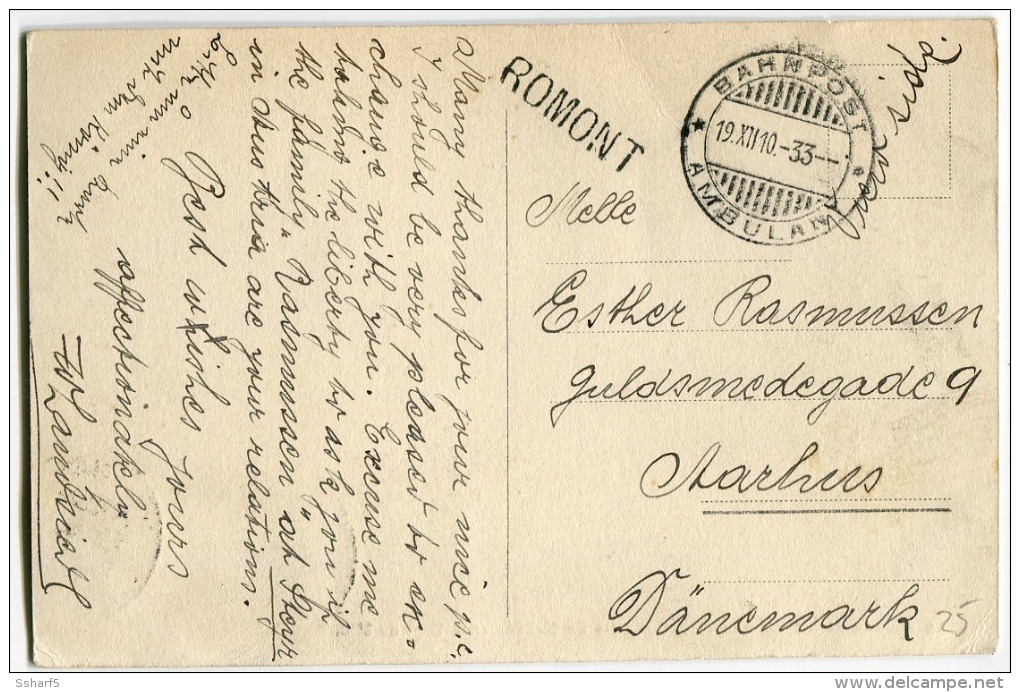 Many thanks for your nice p.c.
I should be very pleased to ex-
change with you. Excuse me
taking the liberty to ask you if
the family „Rasmussen" at Steyr
in Austria are your relations.
Best wishes Yours
affectionately
W Landsiedl
ROMONT
BAHNPOST
19.XII10.-33--
AMBULANT
side.
Melle
Esther Rasmussen
Guldsmedegade 9
Aarhus
Dänemark
25
Ssharf5
www.delcampe.net